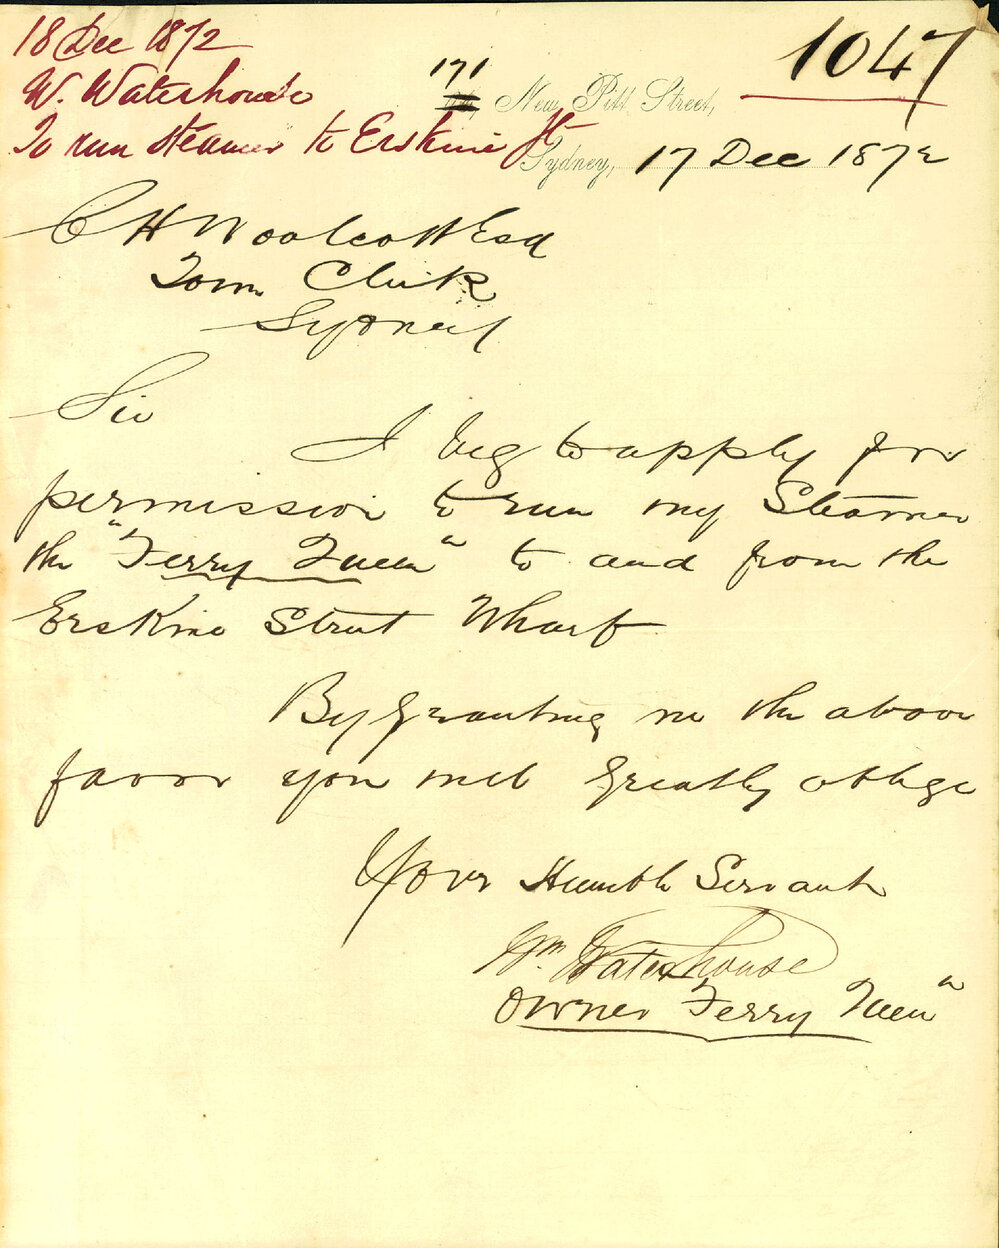 18 Dec 1872
W. Waterhouse
To run steamer to Erskine St
1047
171 New Pitt Street,
Sydney, 17 Dec 1872
C H Woolcott Esq
Town Clerk
Sydney
Sir
I beg to apply for
permission to run my Steamer
the "Ferry Queen" to and from the
Erskine Street Wharf
By granting me the above
favor you will greatly oblige
Your Humble Servant
Wm Waterhouse
Owner Ferry Queen"